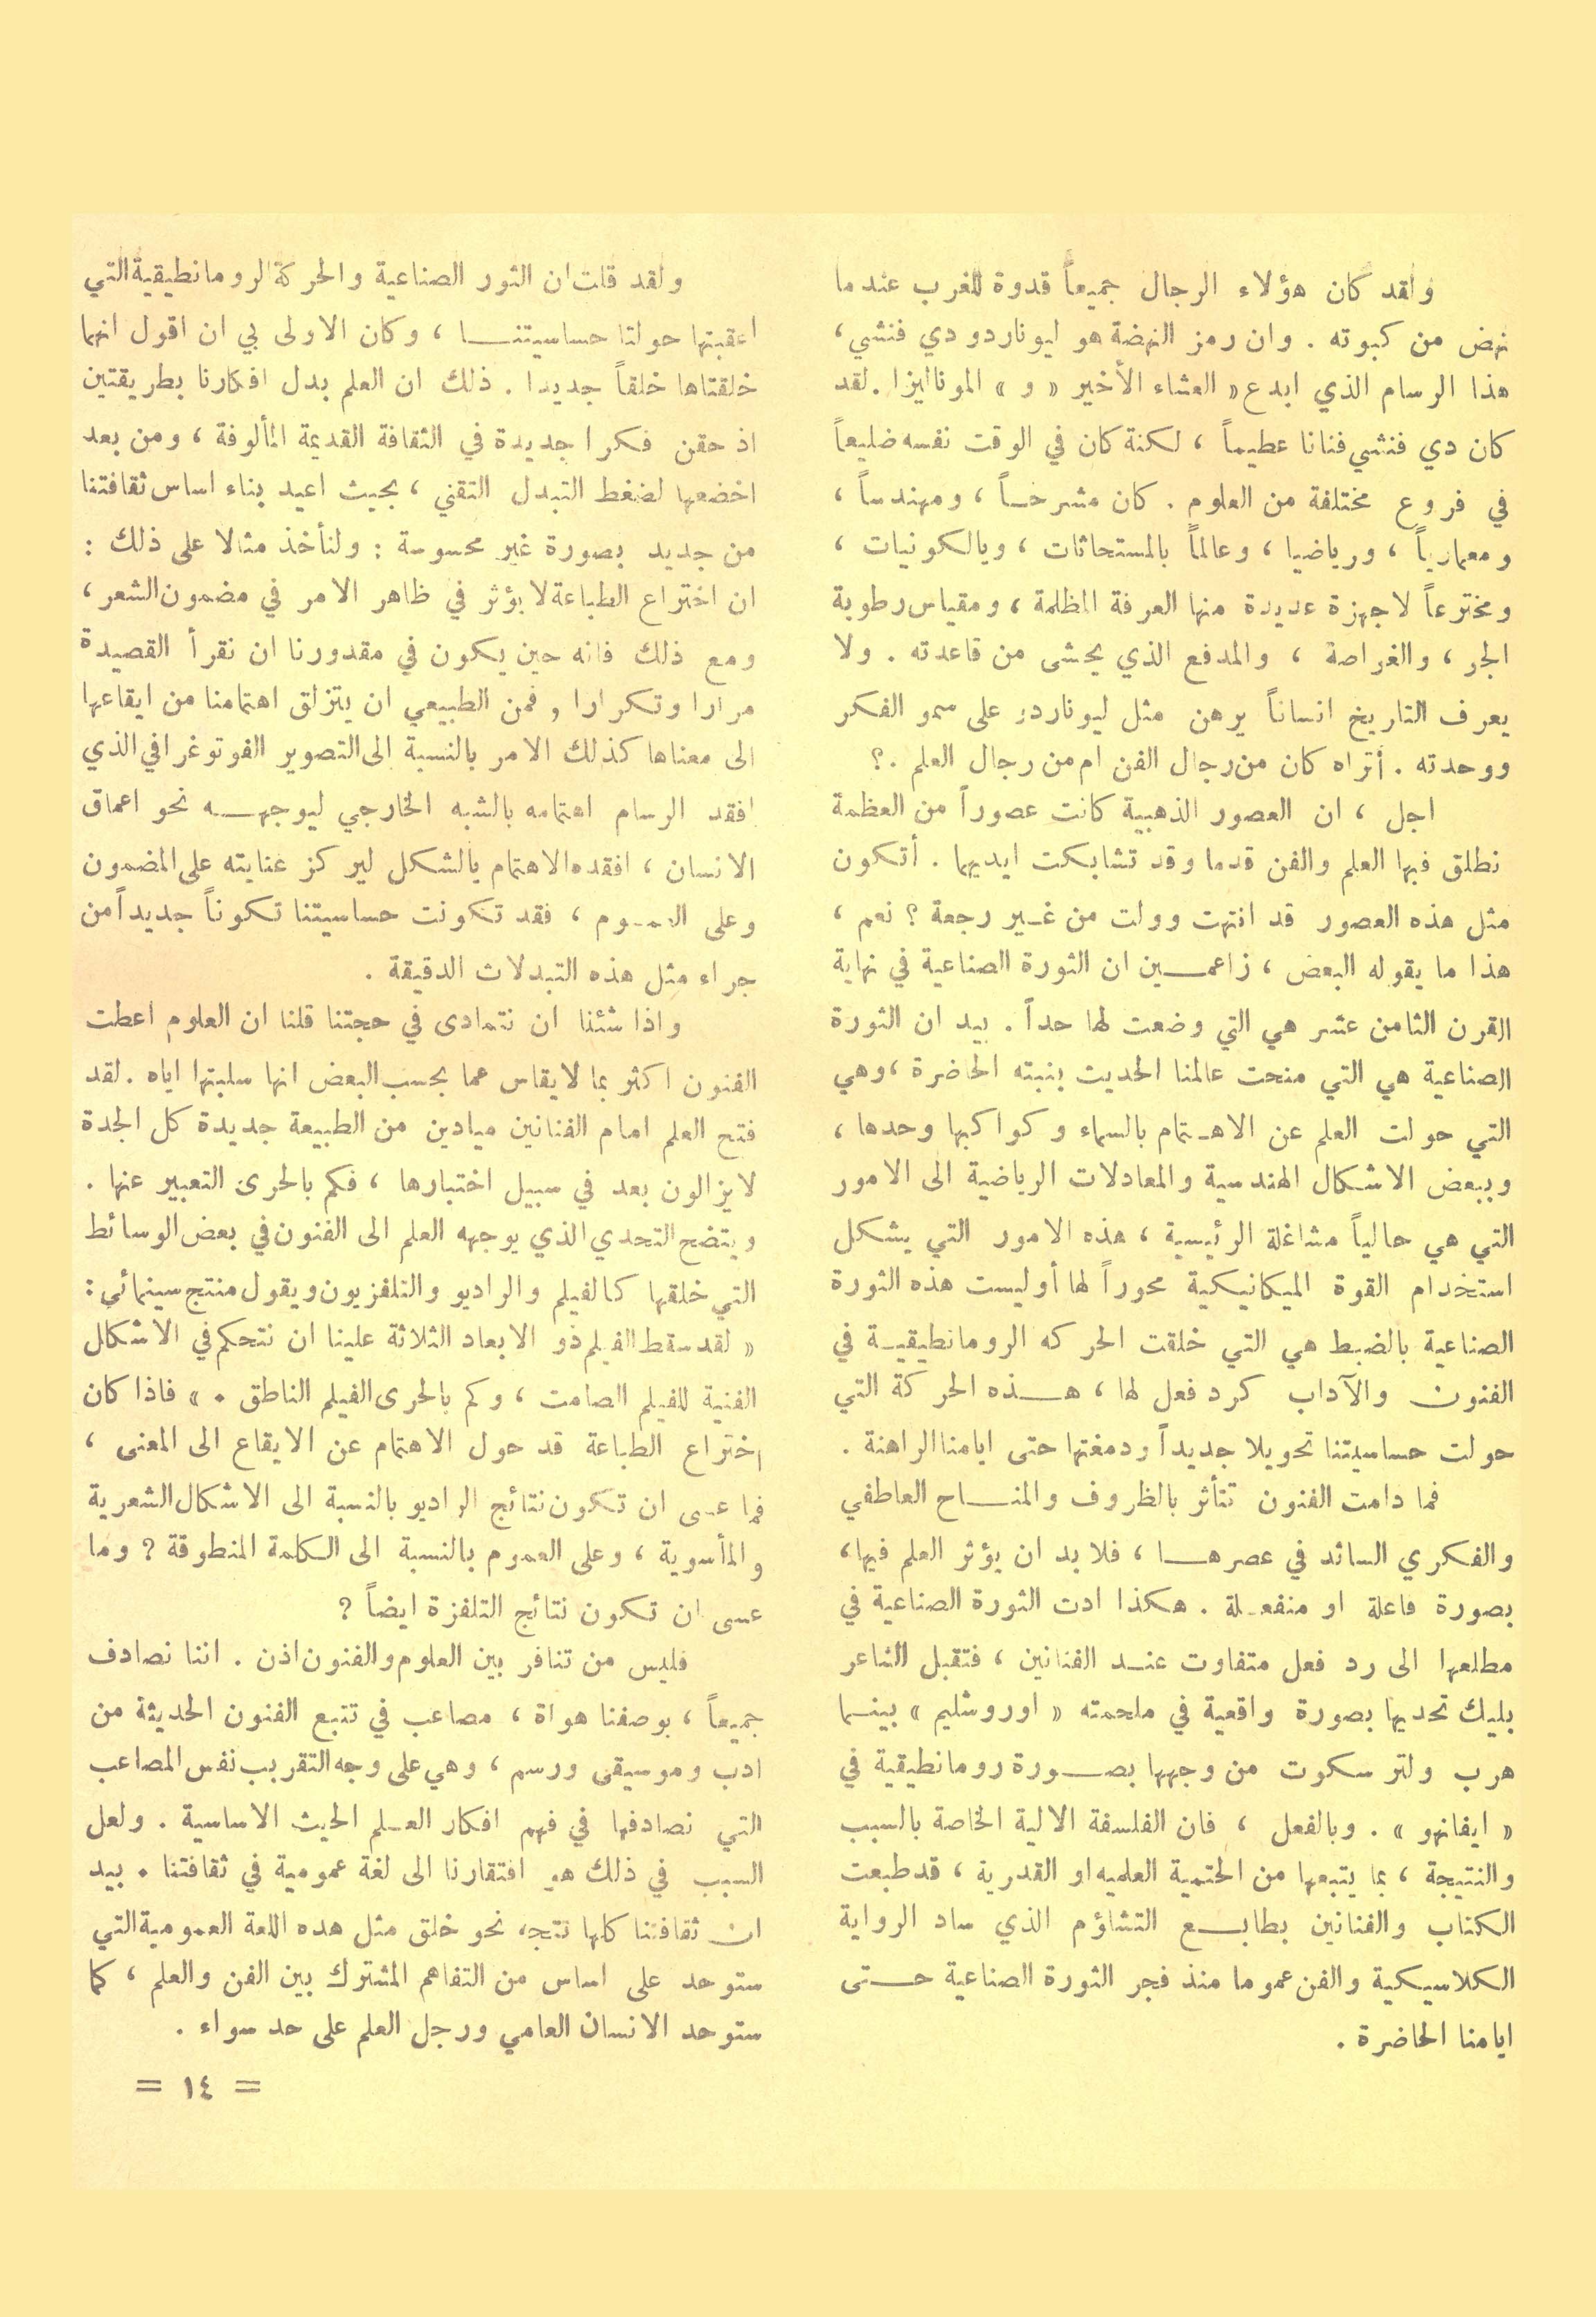 ولقد كان هؤلاء الرجال جميعاً قدوة للغرب عندما
نهض من كبوته . وان رمز النهضة هو ليوناردو دي فنشي،
هذا الرسام الذي ابدع « العشاء الأخير « و » الموناليزا . لقد
كان دي فنشي فنانا عطيماً ، لكنة كان في الوقت نفسه ضليعاً
في فروع مختلفة من العلوم . كان مشرحاً ، ومهندساً ،
ومعمارياً ، ورياضيا ، وعالماً بالمستحاثات ، وبالكونيات ،
ومخترعاً لاجهزة عديدة منها العرفة المظلمة ، ومقياس رطوبة
الجر ، والغراصة ، والمدفع الذي يحشى من قاعدته . ولا
يعرف التاريخ انساناً برهن مثل ليوناردو على سمو الفكر
ووحدته . أتراه كان من رجال الفن ام من رجال العلم .؟
اجل ، ان العصور الذهبية كانت عصوراً من العظمة
نطلق فيها العلم والفن قدما وقد تشابكت ايديهما . أتكون
مثل هذه العصور قد انتهت وولت من غير رجعة ؟ نعم ،
هذا ما يقوله البعض ، زاعمين ان الثورة الصناعية في نهاية
القرن الثامن عشر هي التي وضعت لها حداً . بيد ان الثورة
الصناعية هي التي منحت عالمنا الحديث بنبته الحاضرة ، وهي
التي حولت العلم عن الاهتمام بالسماء وكواكبها وحدها ،
وببعض الاشكال الهندسية والمعادلات الرياضية الى الامور
التي هي حالياً مشاغلة الرئيسية ، هذه الامور التي يشكل
استخدام القوة الميكانيكية محوراً لها أوليست هذه الثورة
الصناعية بالضبط هي التي خلقت الحركه الرومانطيقية في
الفنون والآداب كرد فعل لها ، هذه الحركة التي
حولت حساسيتنا تحويلا جديداً ودمغتها حتى ايامنا الراهنة .
فما دامت الفنون تتأثر بالظروف والمناح العاطفي
والفكري السائد في عصرها ، فلا بد ان يؤثر العلم فيها،
بصورة فاعلة او منفعلة . هكذا ادت الثورة الصناعية في
مطلعها الى رد فعل متفاوت عند الفنانين ، فتقبل الشاعر
بليك تحديها بصورة واقعية في ملحمته « اوروشليم » بينما
هرب ولتر سكوت من وجهها بصورة رومانطيقية في
« ايفانهو » . وبالفعل ، فان الفلسفة الالية الخاصة بالسبب
والنتيجة ، بما يتبعها من الحتمية العلميه او القدرية ، قد طبعت
الكتاب والفنانين بطابع التشاؤم الذي ساد الرواية
الكلاسيكية والفن عموما منذ فجر الثورة الصناعية حتى
ايامنا الحاضرة .
ولقد قلت ان الثور الصناعية والحركة الرومانطيقية التي
اعقبتها حولتا حساسيتنا ، وكان الاولى بي ان اقول انهما
خلقتاها خلقاً جديدا . ذلك ان العلم بدل افكارنا بطريقتين
اذ حقن فكرا جديدة في الثقافة القديمة المألوفة ، ومن بعد
اخضعها لضغط التبدل التقني ، بحيث اعيد بناء اساس ثقافتنا
من جديد بصورة غير محسوسة : ولنأخذ مثالا على ذلك :
ان اختراع الطباعة لا يؤثر في ظاهر الامر في مضمون الشعر ،
ومع ذلك فانه حين يكون في مقدورنا ان نقرأ القصيدة
مرارا وتكرارا , فمن الطبيعي ان يتزلق اهتمامنا من ايقاعها
الى معناها كذلك الامر بالنسبة الى التصوير الفوتوغرافي الذي
افقد الرسام اهتمامه بالشبه الخارجي ليوجهه نحو اعماق
الانسان ، افقده الاهتمام بالشكل ليركز عنايته على المضمون
وعلى العموم ، فقد تكونت حساسيتنا تكوناً جديداً من
جراء مثل هذه التبدلات الدقيقة .
واذا شئنا ان نتمادى في حجتنا قلنا ان العلوم اعطت
الفنون اكثر بما لا يقاس عما يحسب البعض انها سلبتها اياه . لقد
فتح العلم امام الفنانين ميادين من الطبيعة جديدة كل الجدة
لا يزالون بعد في سبيل اختبارها ، فكم بالحرى التعبير عنها .
ويتضح التحدي الذي يوجهه العلم الى الفنون في بعض الوسائط
التي خلقها كالفيلم والراديو والتلفزيون ويقول منتج سينمائي :
« لقد سقط الفيلم ذو الابعاد الثلاثة علينا ان نتحكم في الاشكال
الفنية للفيلم الصامت ، وكم بالحرى الفيلم الناطق . » فاذا كان
اختراع الطباعة قد حول الاهتمام عن الايقاع الى المعنى ،
فما عسى ان تكون نتائج الراديو بالنسبة الى الاشكال الشعرية
والمأسوية ، وعلى العموم بالنسبة الى الكلمة المنطوقة ? وما
عسى ان تكون نتائج التلفزة ايضاً ?
فليس من تنافر بين العلوم والفنون اذن . اننا نصادف
جميعاً ، بوصفنا هواة ، مصاعب في تتبع الفنون الحديثة من
ادب وموسيقى ورسم ، وهي على وجه التقريب نفس المصاعب
التي نصادفها في فهم افكار العلم الحيث الاساسية . ولعل
السبب في ذلك هو افتقارنا الى لغة عمومية في ثقافتنا . بيد
ان ثقافتنا كلها تتجه نحو خلق مثل هده اللعة العمومية التي
ستوحد على اساس من التفاهم المشترك بين الفن والعلم ، كما
ستوحد الانسان العامي ورجل العلم على حد سواء .
= ١٤ =